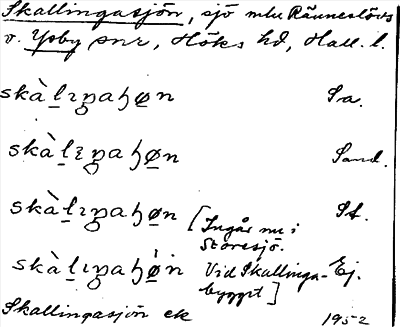 Skallingasjön, sjö mlu Ränneslövs
v. Ysby snr, Höks hd, Hall. l.
skàlıŋaɧøn Sa.
skàlıŋaɧøn Sand.
skàlıŋaɧøn [Ingår nu i St.
Storesjö.
skàlıŋaɧøn Vid Skallinga- Ej.
bygget]
Skallingasjön ek 1952